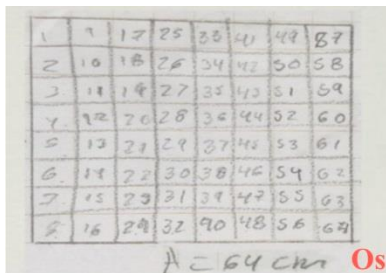 1 9 17 25 33 41 49 87
2 10 18 26 34 42 50 58
3 11 19 27 35 43 51 59
4 12 20 28 36 44 52 60
5 13 21 29 37 45 53 61
6 14 22 30 38 46 54 62
7 15 23 31 39 47 55 63
8 16 24 32 40 48 56 64
A = 64 cm Os